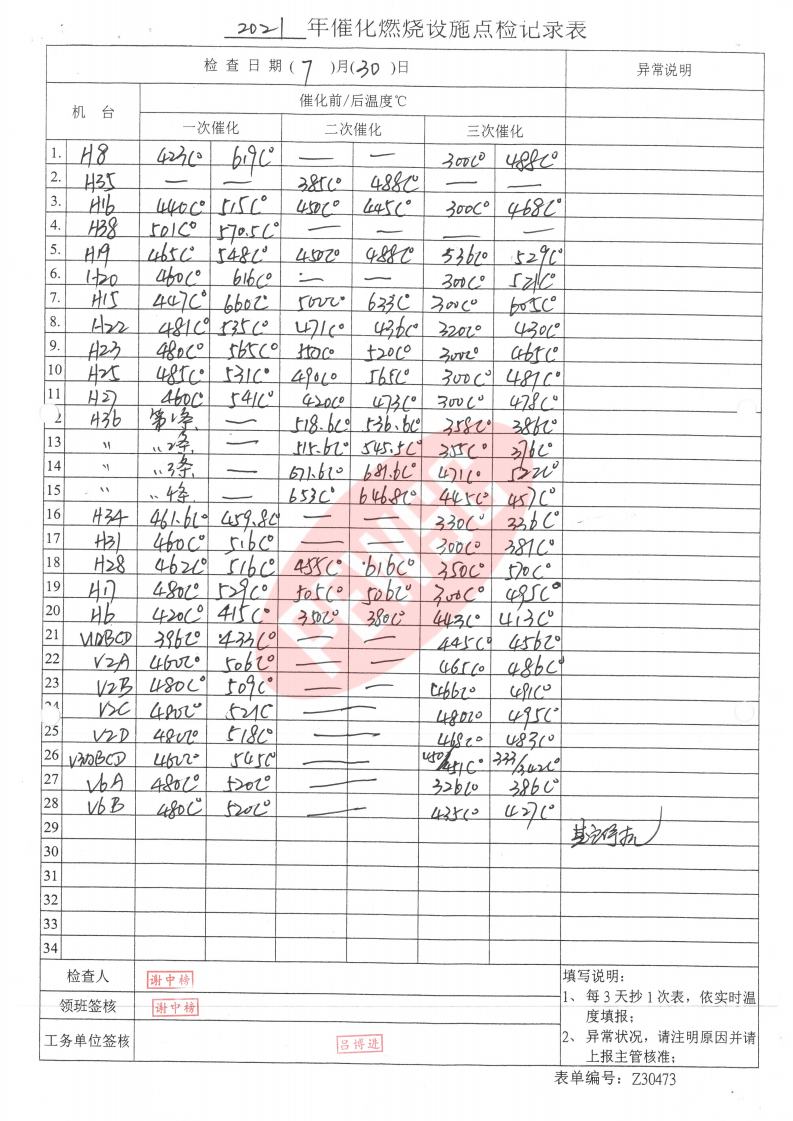 2021 年催化燃烧设施点检记录表
检 查 日 期 ( 7 )月(30)日 异常说明
机 台 催化前/后温度℃
一次催化 二次催化 三次催化
1. H8 423C° 619C° — — 300C° 488C°
2. H35 — — 385C° 488C° — —
3. H16 440C° 515C° 450C° 445C° 300C° 468C°
4. H38 501C° 570.5C°
5. H19 465C° 548C° 450C° 488C° 536C° 529C°
6. H20 460C° 616C° — — 300C° 521C°
7. H15 447C° 660C° 500C° 633C° 300C° 605C°
8. H22 481C° 535C° 471C° 436C° 320C° 430C°
9. H23 480C° 565C° 510C° 520C° 300C° 465C°
10 H25 485C° 531C° 490C° 565C° 300C° 487C°
11 H27 460C° 541C° 420C° 473C° 300C° 478C°
2 H36 第1条 — 518.6C° 536.6C° 358C° 386C°
13 〃 〃2条 515.6C° 545.5C° 355C° 376C°
14 〃 〃3条 — 671.6C° 681.6C° 471C° 522C°
15 〃 〃4条 — 653C° 646.8C° 445C° 457C°
16 H34 461.6C° 459.8C° — — 330C° 336C°
17 H31 460C° 516C° — — 300C° 381C°
18 H28 462C° 516C° 455C° 616C° 350C° 570C°
19 H17 480C° 529C° 505C° 506C° 300C° 495C°
20 H6 420C° 415C° 350C° 380C° 443C° 413C°
21 396C° 433C° — — 445C° 456C°
22 V2A 460C° 506C° — — 465C° 486C°
23 V2B 480C° 509C° — — 466C° 491C°
V2C 480C° 521C — — 480C° 495C°
25 V2D 480C° 518C° — — 468C° 483C°
26 460C° 545C° — — 450/451C° 333/342C°
27 V6A 480C° 520C° — 326C° 386C°
28 V6B 480C° 520C° — 435C° 427C°
29
30
31
32
33
34
PEWHC
检查人 谢中榜
领班签核 谢中榜
工务单位签核 吕博进
填写说明：
1、 每 3 天抄 1 次表，依实时温
度填报；
2、 异常状况，请注明原因并请
上报主管核准；
表单编号：Z30473